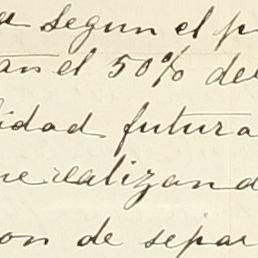 a segun el p
an el 50% de
lidad futura
ne realizand
on de separ